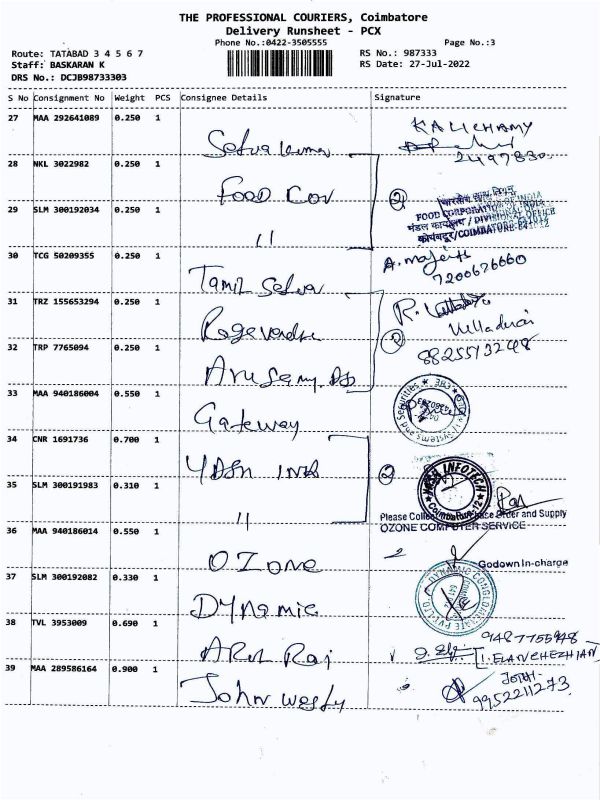 THE PROFESSIONAL COURIERS, Coimbatore
Delivery Runsheet - PCX
Phone No.:0422-3505555
Page No.:3
Route: TATABAD 3 4 5 6 7
RS No.: 987333
Staff: BASKARAN K
RS Date: 27-Jul-2022
DRS No.: DCJB98733303
S No Consignment No Weight PCS Consignee Details Signature
27 MAA 292641089 0.250 1
KALICHAMY
2497830
28 NKL 3022982 0.250 1
Food Cor
2
FOOD CORPORATION OF INDIA
मंडल कार्यालय / DIVISIONAL OFFICE
कोयंबटूर/COIMBATORE-641012
29 SLM 300192034 0.250 1
"
30 TCG 50209355 0.250 1
Tamil Selva
7200676660
31 TRZ 155653294 0.250 1
R.
Velladurai
2
8825513248
32 TRP 7765094 0.250 1
33 MAA 940186004 0.550 1
Gateway
34 CNR 1691736 0.700 1
2
INFOTECH
Coimbatore-12
35 SLM 300191983 0.310 1
"
OZONE COMPUTER SERVICE
36 MAA 940186014 0.550 1
Ozone
Godown In-charge
37 SLM 300192082 0.330 1
Dynamic
38 TVL 3953009 0.690 1
Arul Raj
9487755948
I. ELANCHEZHIAN
39 MAA 289586164 0.900 1
John Wesly
9952211273